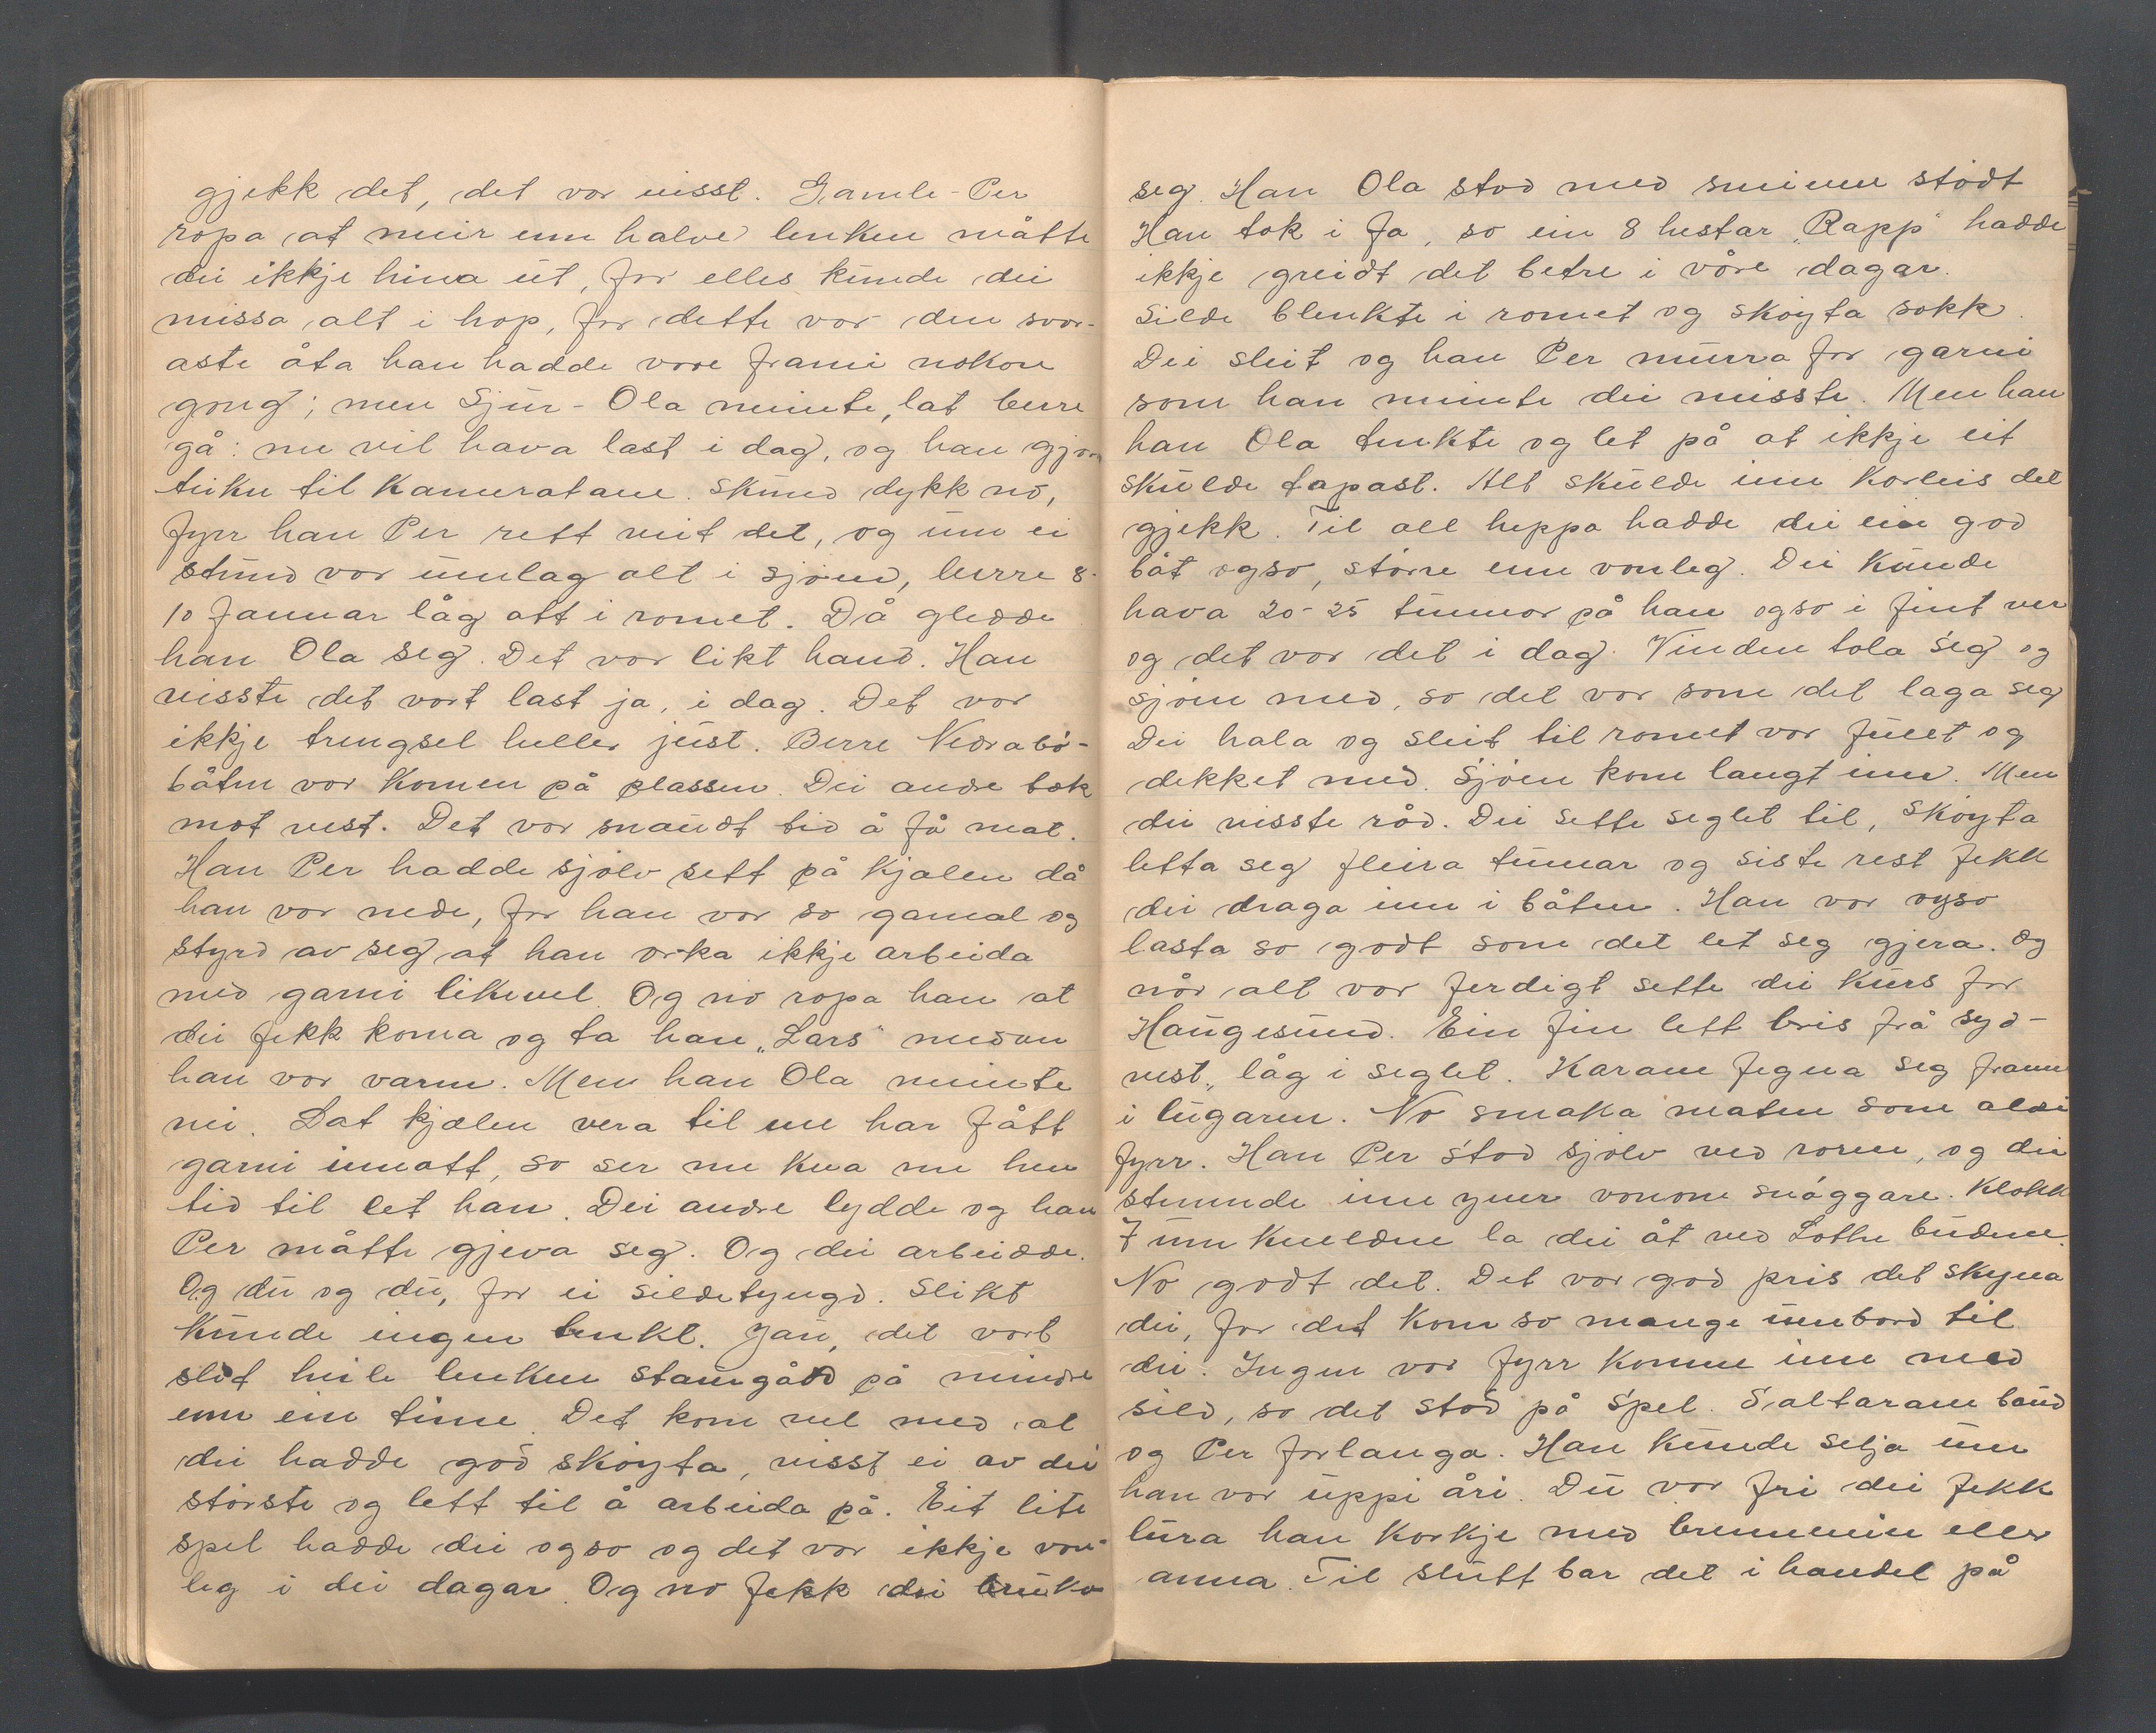 gjekk det, det var visst. Gamle-Per
ropa at meir enn halve lenken måtte
dei ikkje hiva ut, for elles kunde dei
missa alt i hop, for dette var den svær-
aste åta han hadde vore frami nokon
gong; men Sjur-Ola meinte, lat berre
gå: me vil hava last i dag, og han gjorde
teikn til kameratane. Skund dykk no,
fyrr han Per rett veit det, og um ei
stund var umlag alt i sjøen, berre 8-
10 famnar låg att i romet. Då gledde
han Ola seg. Det var likt hand. Han
visste det vart last ja, i dag. Det var
ikkje trengsel heller just. Berre Nedrabø-
båten var komen på plassen. Dei andre tok
mot vest. Det var snaudt tid å få mat.
Han Per hadde sjølv sett på kjelen då
han var nede, for han var so gamal og
styrd av seg at han orka ikkje arbeida
med garni likevel. Og no ropa han at
dei fekk koma og ta han „Lars" medan
han var varm. Men han Ola meinte
nei. Lat kjelen vera til me har fått
garni innatt, so ser me kva me hev
tid til let han. Dei andre lydde og han
Per måtte gjeva seg. Og dei arbeidde.
Og du og du, for ei sildetyngd. Slikt
kunde ingen tenkt. Jau, det vart
slit heile lenken stamgård på mindre
enn ein time. Det kom vel med at
dei hadde god skøyta, visst ei av dei
største og lett til å arbeida på. Eit lite
spel hadde dei ogso og det var ikkje van-
leg i dei dagar. Og no fekk dei bruka
seg. Han Ola stod med sveiven stødt
Han tok i fa, so ein 8 hestar „Rapp" hadde
ikkje greidt det betre i våre dagar.
Silde blenkte i romet og skøyta sokk.
Dei sleit og han Per murra for garni
som han meinte dei misste. Men han
han Ola tenkte og let på at ikkje eit
skulde tapast. Alt skulde inn korleis det
gjekk. Til all heppa hadde dei ein god
båt ogso, større enn vanleg. Dei kunde
hava 20-25 tunnor på han ogso i fint ver
og det var det i dag. Vinden tola seg og
sjøen med, so det var som det laga seg
Dei hala og sleit til romet var fullt og
dekket med. Sjøen kom langt inn. Men
dei visste råd. Dei sette seglet til, skøyta
letta seg fleira tumar og siste rest fekk
dei draga inn i båten. Han var ogso
lasta so godt som det let seg gjera. Og
når alt var ferdigt sette dei kurs for
Haugesund. Ein fin lett bris frå syd-
vest, låg i seglet. Karane fegna seg framm
i lugaren. No smaka maten som aldri
fyrr. Han Per stod sjølv ved roren, og dei
stemnde inn yver vonom snøggare. Klokk
7 um kvelden la dei åt ved Lothe budene.
No godt det. Det var god pris det skyna
dei, for det kom so mange umbord til
dei. Ingen var fyrr komne inn med
sild, so det stod på spel. Saltarane baud
og Per forlanga. Han kunde selja um
han var uppi åri. Du var fri dei fekk
lura han korkje med brennevin eller
anna. Til slutt bar det i handel på